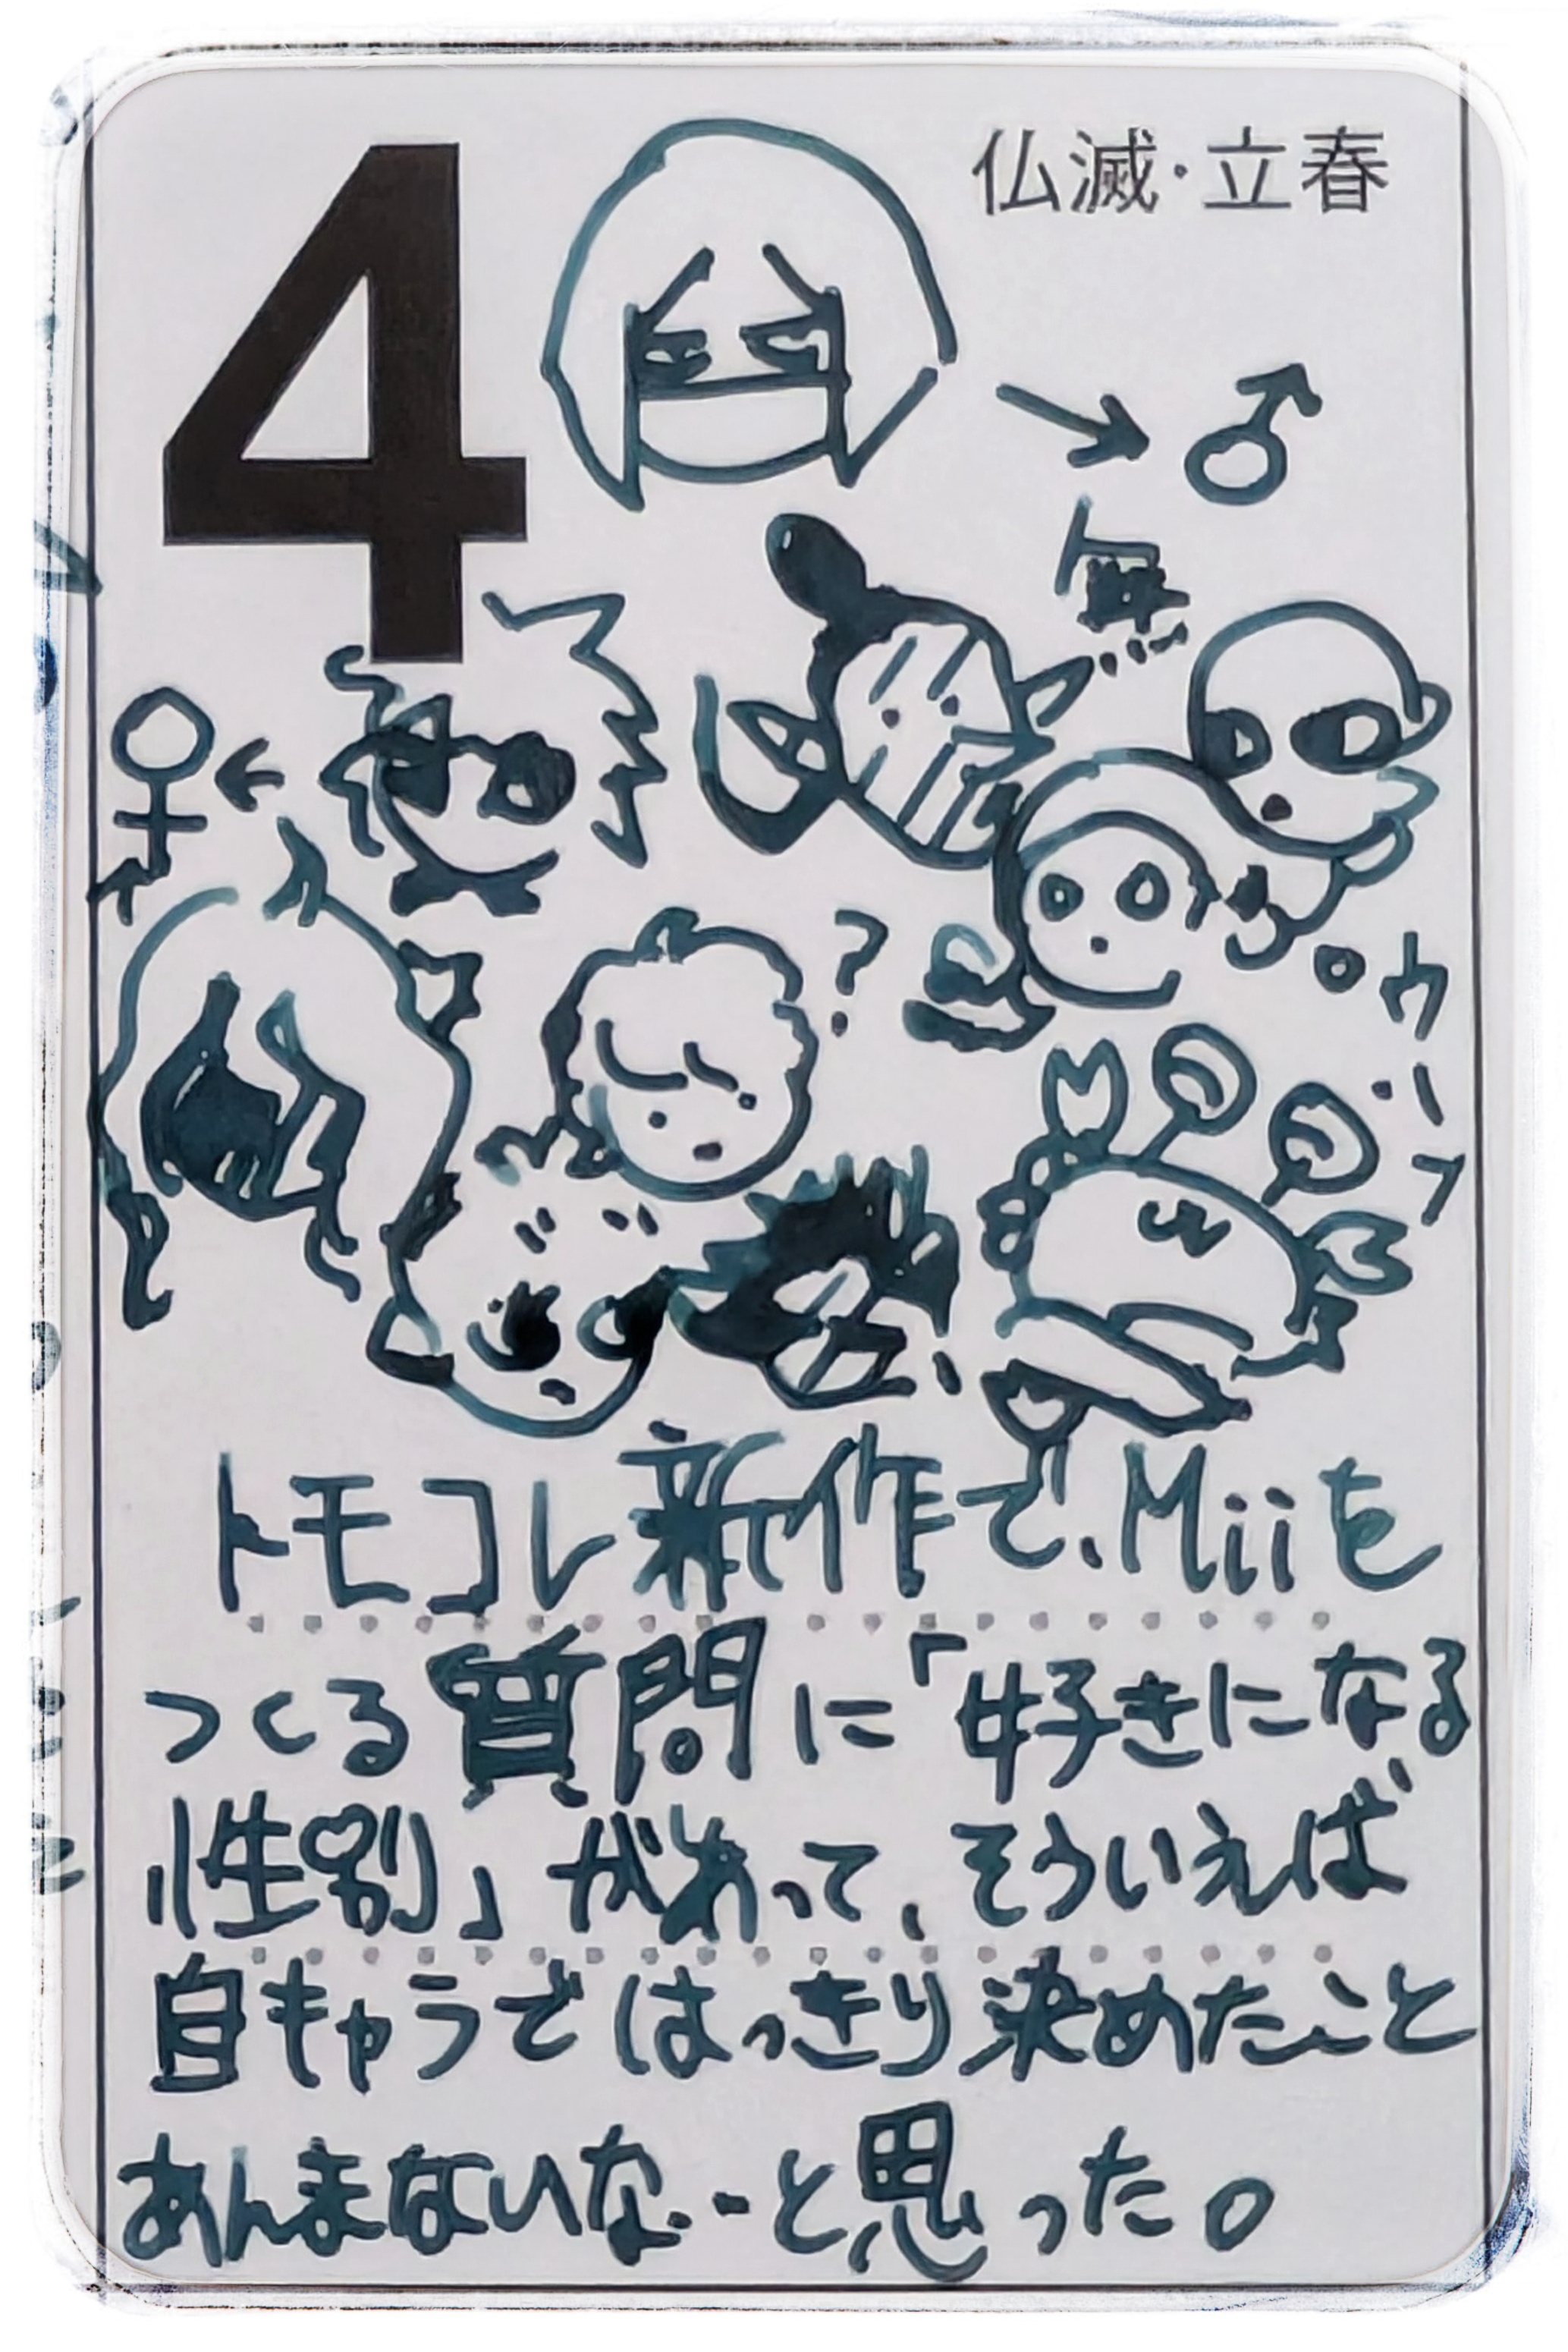 4
仏滅・立春
→♂
無…
♀←
?
ウーフ
トモコレ新作で、Miiを
つくる質問に「好きになる
性別」があって、そういえば
自キャラではっきり決めたこと
あんまないな…と思った。